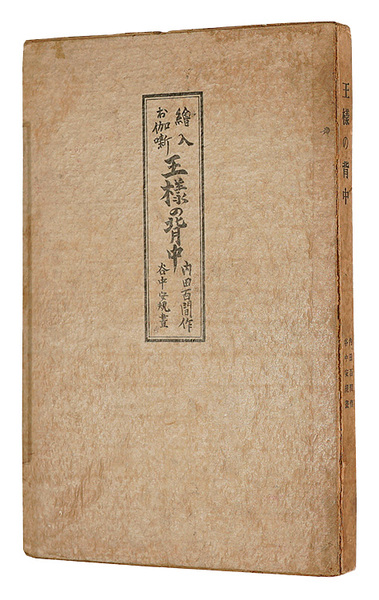 繪入
お伽噺
王樣の背中
内田百間作
谷中安規畫
王樣の背中
内田百間作
谷中安規畫